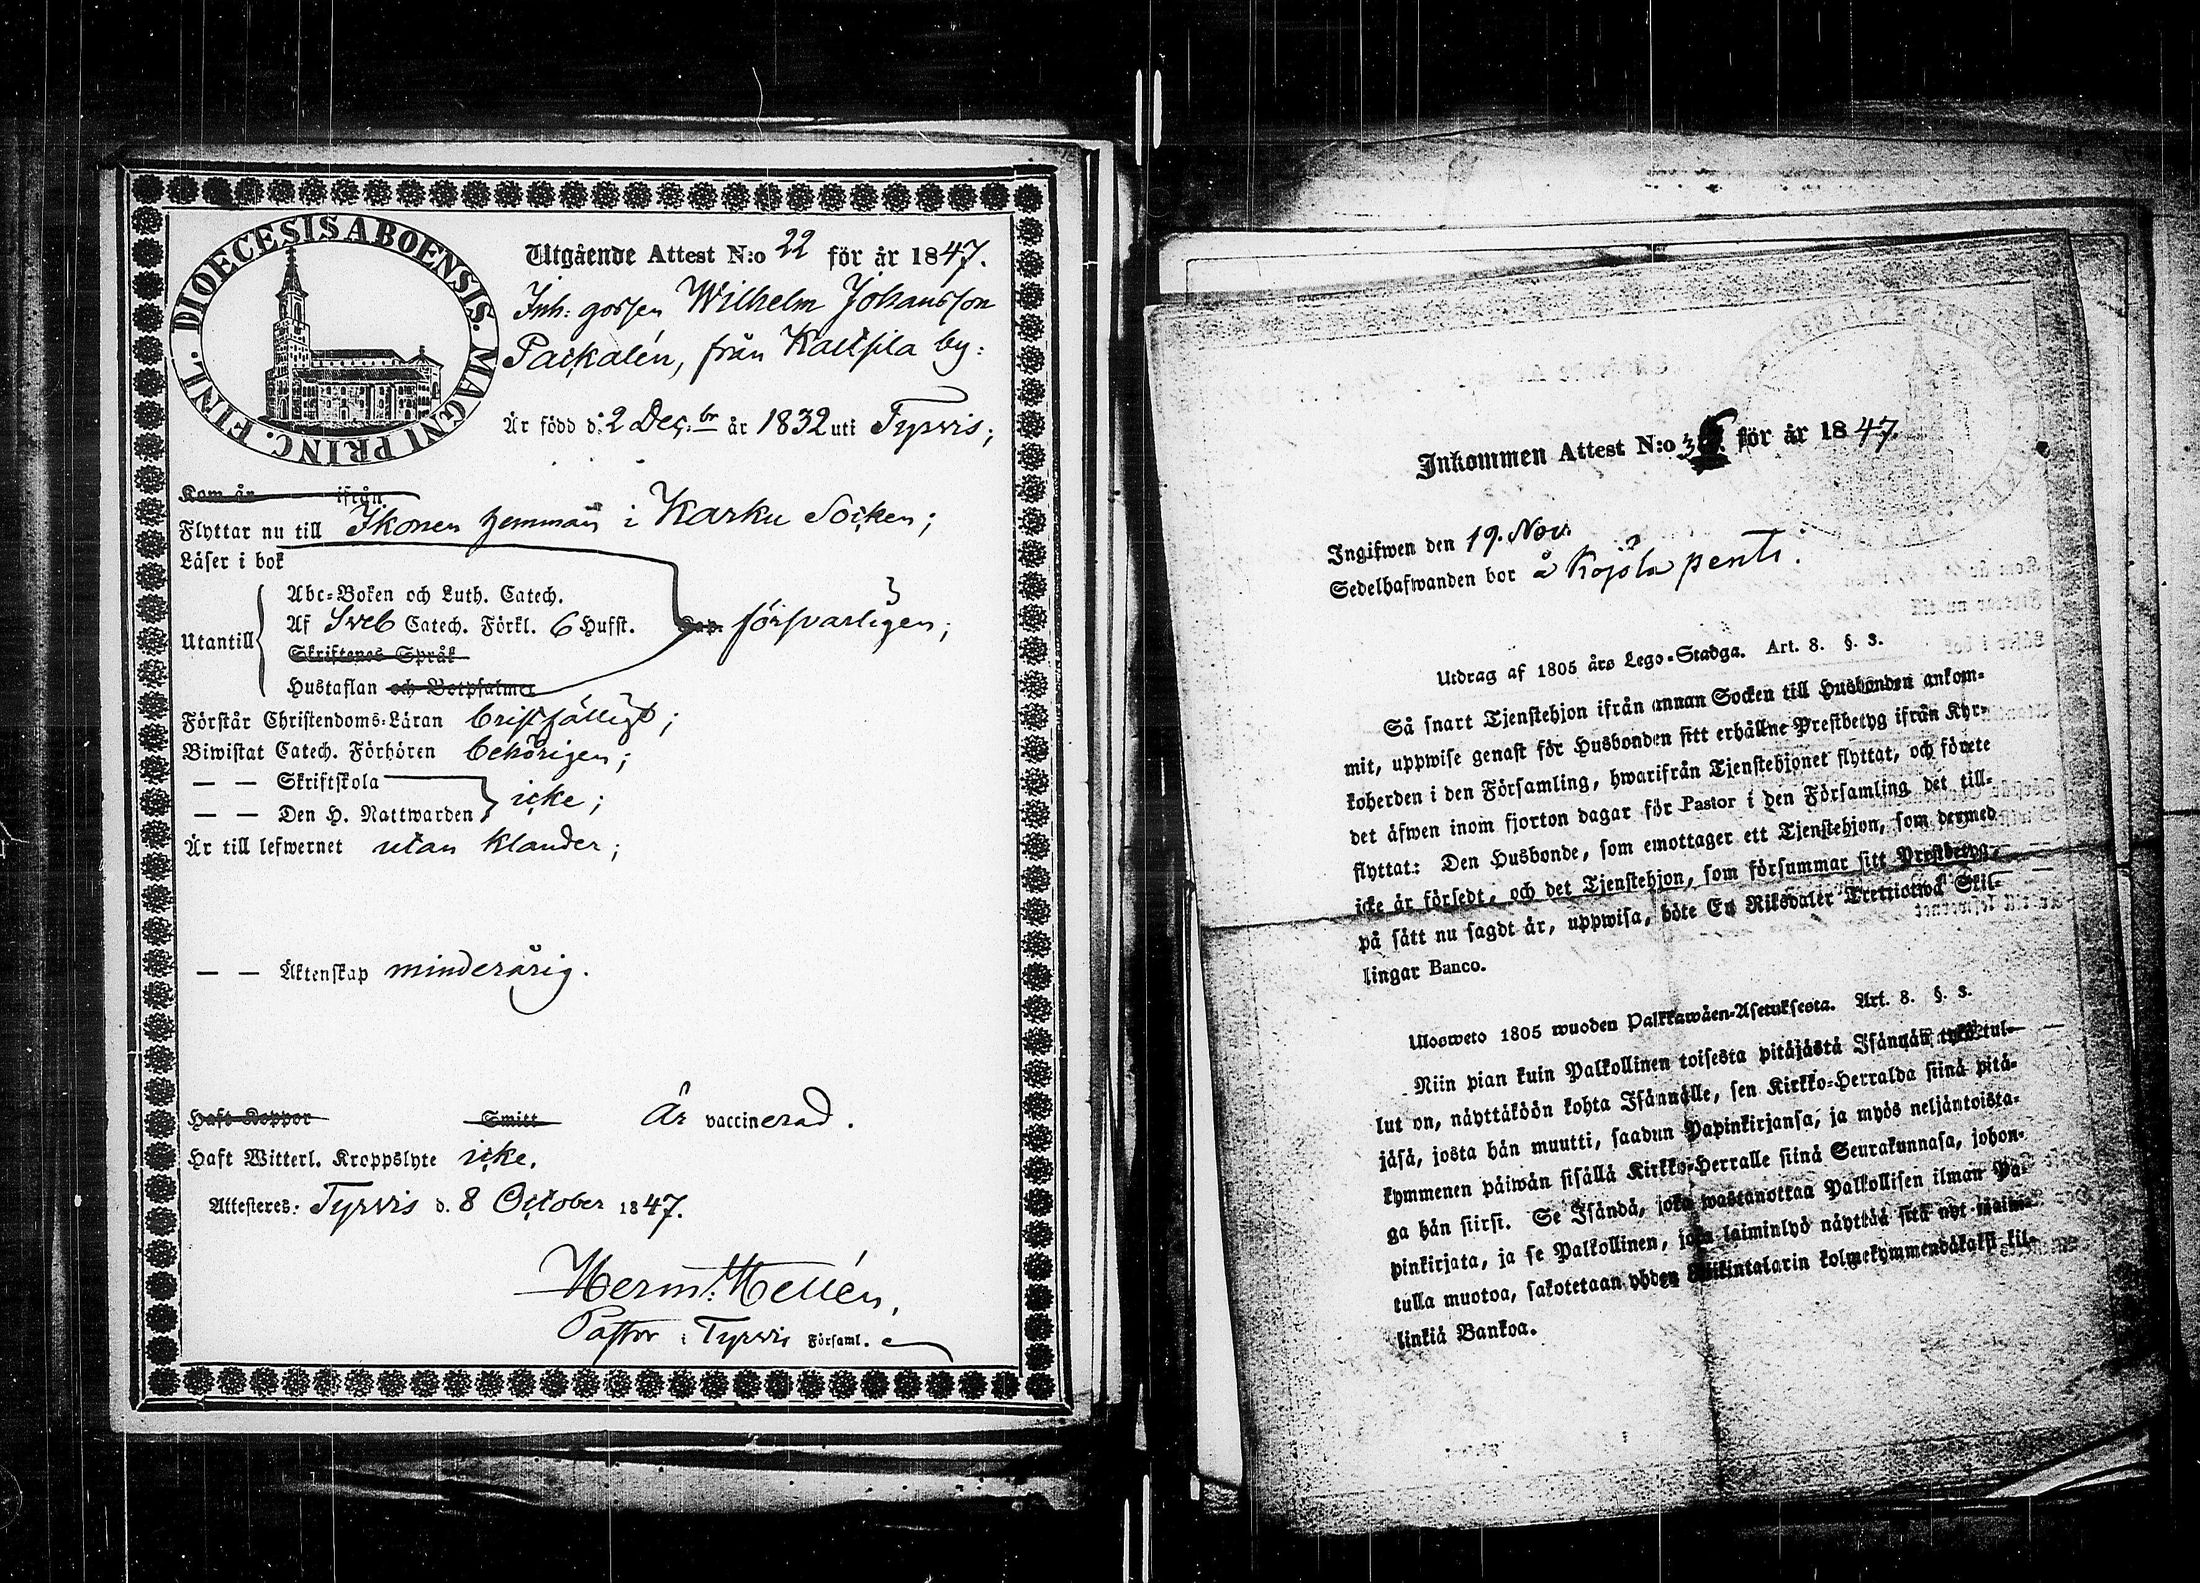 DIOECESIS ABOENSIS. MAGNI PRINC. FINL.
Utgående Attest N:o 22 för år 1847.
Inh: gossen Wilhelm Johansson
Paikalén, från Kalljila by:
Är född d. 2 Dec:br år 1832 uti Tyrvis;
Kom år ifrån
Flyttar nu till Ikonen hemman i Karku Socken;
Läser i bok
Utantill
Abc-Boken och Luth. Catech.
Af Sveb Catech. Förkl. 6 Hufst. Cap. försvarligen;
Skriftenes Språk
Hustaflan och Botpsalmer
Förstår Christendoms-Läran bristfälligt;
Biwistat Catech. Förhören behörigen;
— — Skriftskola
— — Den H. Nattwarden icke;
Är till lefwernet utan klander;
— — Äktenskap minderårig.
Haft Koppor Smitt Är vaccinerad.
Haft Witterl. Kroppslyte icke.
Attesteres: Tyrvis d. 8 October 1847.
Herm. Hellén,
Pastor i Tyrvis Församl.
Inkommen Attest N:o för år 1847.
Ingifwen den 19. Nov.
Sedelhafwanden bor å Köjola pentti.
Utdrag af 1805 års Lego-Stadga. Art. 8. §. 3.
Så snart Tjenstehjon ifrån annan Socken till Husbonden ankom-
mit, uppwise genast för Husbonden sitt erhållne Prestbetyg ifrån Kyr-
koherden i den Församling, hwarifrån Tjenstehjonet flyttat, och förete
det äfwen inom fjorton dagar för Pastor i den Församling det till-
flyttat: Den Husbonde, som emottager ett Tjenstehjon, som dermed
icke är försedt, och det Tjenstehjon, som försummar sitt Prestbetyg,
på sätt nu sagdt är, uppwisa, böte En Riksdaler Trettiotwå Skil-
lingar Banco.
Ulosweto 1805 wuoden Palkkawäen-Asetuksesta. Art. 8. §. 3.
Niin pian kuin Palkollinen toisesta pitäjästä Isännän tykö tul-
lut on, näyttäköön kohta Isännälle, sen Kirkko-Herralda siinä pitä-
jäsä, josta hän muutti, saadun Papinkirjansa, ja myös neljäntoista-
kymmenen päiwän sisällä Kirkko-Herralle siinä Seurakunnasa, johon-
ga hän siirsi. Se Isändä, joka wastanottaa Palkollisen ilman Pa-
pinkirjata, ja se Palkollinen, joka laiminlyö näyttää sitä nyt main-
tulla muotoa, sakotetaan yhden Riikintalarin kolmekymmendäkaksi kil-
linkiä Bankoa.